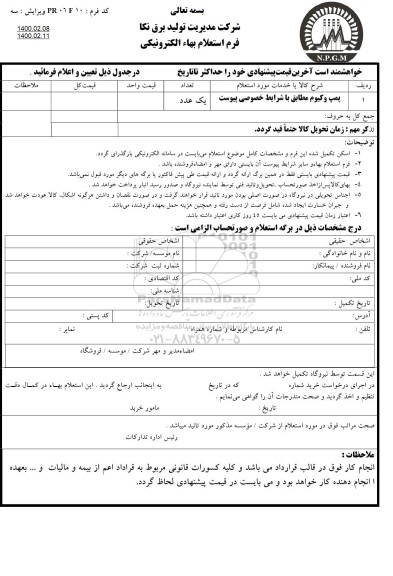 بسمه تعالی
کد فرم : PR ۰۶ F ۱۰ ویرایش : سه
شرکت مدیریت تولید برق نکا
فرم استعلام بهاء الکترونیکی
1400.02.08
1400.02.11
N.P.G.M
خواهشمند است آخرین قیمت پیشنهادی خود را حداکثر تاتاریخ درجدول ذیل تعیین و اعلام فرمائید .
ردیف شرح کالا یا خدمات مورد استعلام تعداد قیمت واحد قیمت کل ملاحظات
۱ پمپ وکیوم مطابق با شرایط خصوصی پیوست یک عدد
جمع کل به حروف:
تذکر مهم : زمان تحویل کالا حتماً قید گردد.
توضیحات:
۱- اسکن تکمیل شده این فرم و مشخصات کامل موضوع استعلام می‌بایست در سامانه الکترونیکی بارگذاری گردد.
۲- فرم استعلام بهاءو سایر شرایط پیوست آن بایستی دارای مهر و امضاءفروشنده باشد .
۳- قیمت پیشنهادی بایستی فقط در همین برگ ارائه گردد و ارائه قیمت طی پیش فاکتور یا برگه های دیگر مورد قبول نمی‌باشد.
۴- بهای‌کالاپس‌ازاخذ صورتحساب ،تحویل‌وتائید فنی توسط نماینده نیروگاه و صدور رسید انبار پرداخت خواهد شد .
۵- اجناس تحویلی در نیروگاه در صورت اصلی بودن مورد تائید قرار خواهند گرفت و در صورت نقصان و داشتن هرگونه اشکال، کالا عودت خواهد شد
و جبران خسارت ایجاد شده شامل فرصت از دست رفته و همچنین هزینه حمل بعهده فروشنده می‌باشد .
۶- اعتبار زمان قیمت پیشنهادی می بایست ۴۵ روز کاری اعتبار داشته باشد
درج مشخصات ذیل در برگه استعلام و صورتحساب الزامی است :
اشخاص حقیقی اشخاص حقوقی:
نام و نام خانوادگی : نام مؤسسه/ شرکت :
نام فروشنده / پیمانکار: شماره ثبت شرکت :
کد ملی: کد اقتصادی :
شناسه ملی:
تاریخ تکمیل : تاریخ تحویل:
آدرس: کد پستی :
تلفن : نام کارشناس مربوطه و شماره همراه : نمابر :
۰۲۱-۸۸۳۴۹۶۷۰-۵
امضاء‌مدیر و مهر شرکت / موسسه / فروشگاه
این قسمت توسط نیروگاه تکمیل خواهد شد .
در اجرای درخواست خرید شماره که در تاریخ به اینجانب ارجاع گردید . این استعلام بهاء در کمال دقت
تنظیم و اخذ گردید و صحت مندرجات آن را گواهی می‌نمایم .
تاریخ : مامور خرید
صحت مراتب فوق در مورد استعلام از شرکت / مؤسسه مذکور مورد تائید میباشد .
رئیس اداره تدارکات
ملاحظات :
انجام کار فوق در قالب قرارداد می باشد و کلیه کسورات قانونی مربوط به قراداد اعم از بیمه و مالیات و ... بعهده
ا انجام دهنده کار خواهد بود و می بایست در قیمت پیشنهادی لحاظ گردد.